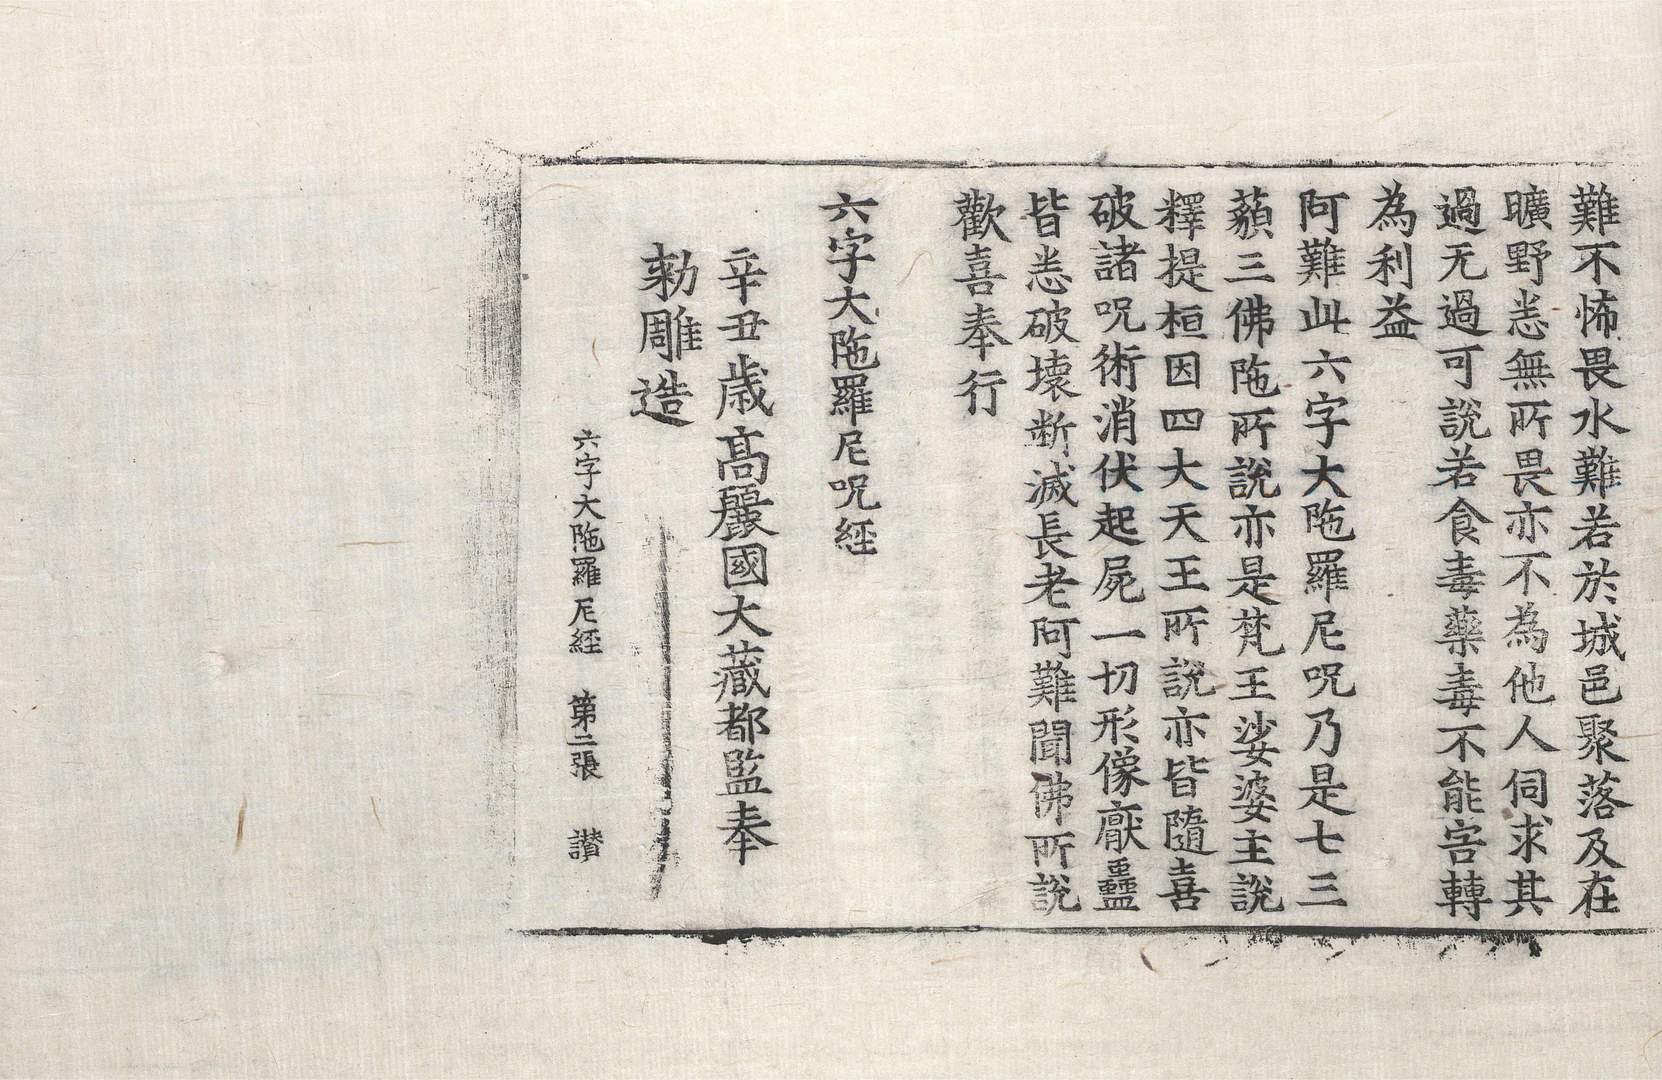 難不怖畏水難若於城邑聚落及在
曠野悉無所畏亦不為他人伺求其
過无過可說若食毒藥毒不能害轉
為利益
阿難此六字大陁羅尼呪乃是七三
藐三佛陁所說亦是梵王娑婆主說
釋提桓因四大天王所說亦皆隨喜
破諸呪術消伏起屍一切形像厭蠱
皆悉破壞斷滅長老阿難聞佛所說
歡喜奉行
六字大陁羅尼呪經
辛丑歲高麗國大藏都監奉
勑雕造
六字大陁羅尼經 第二張 讃